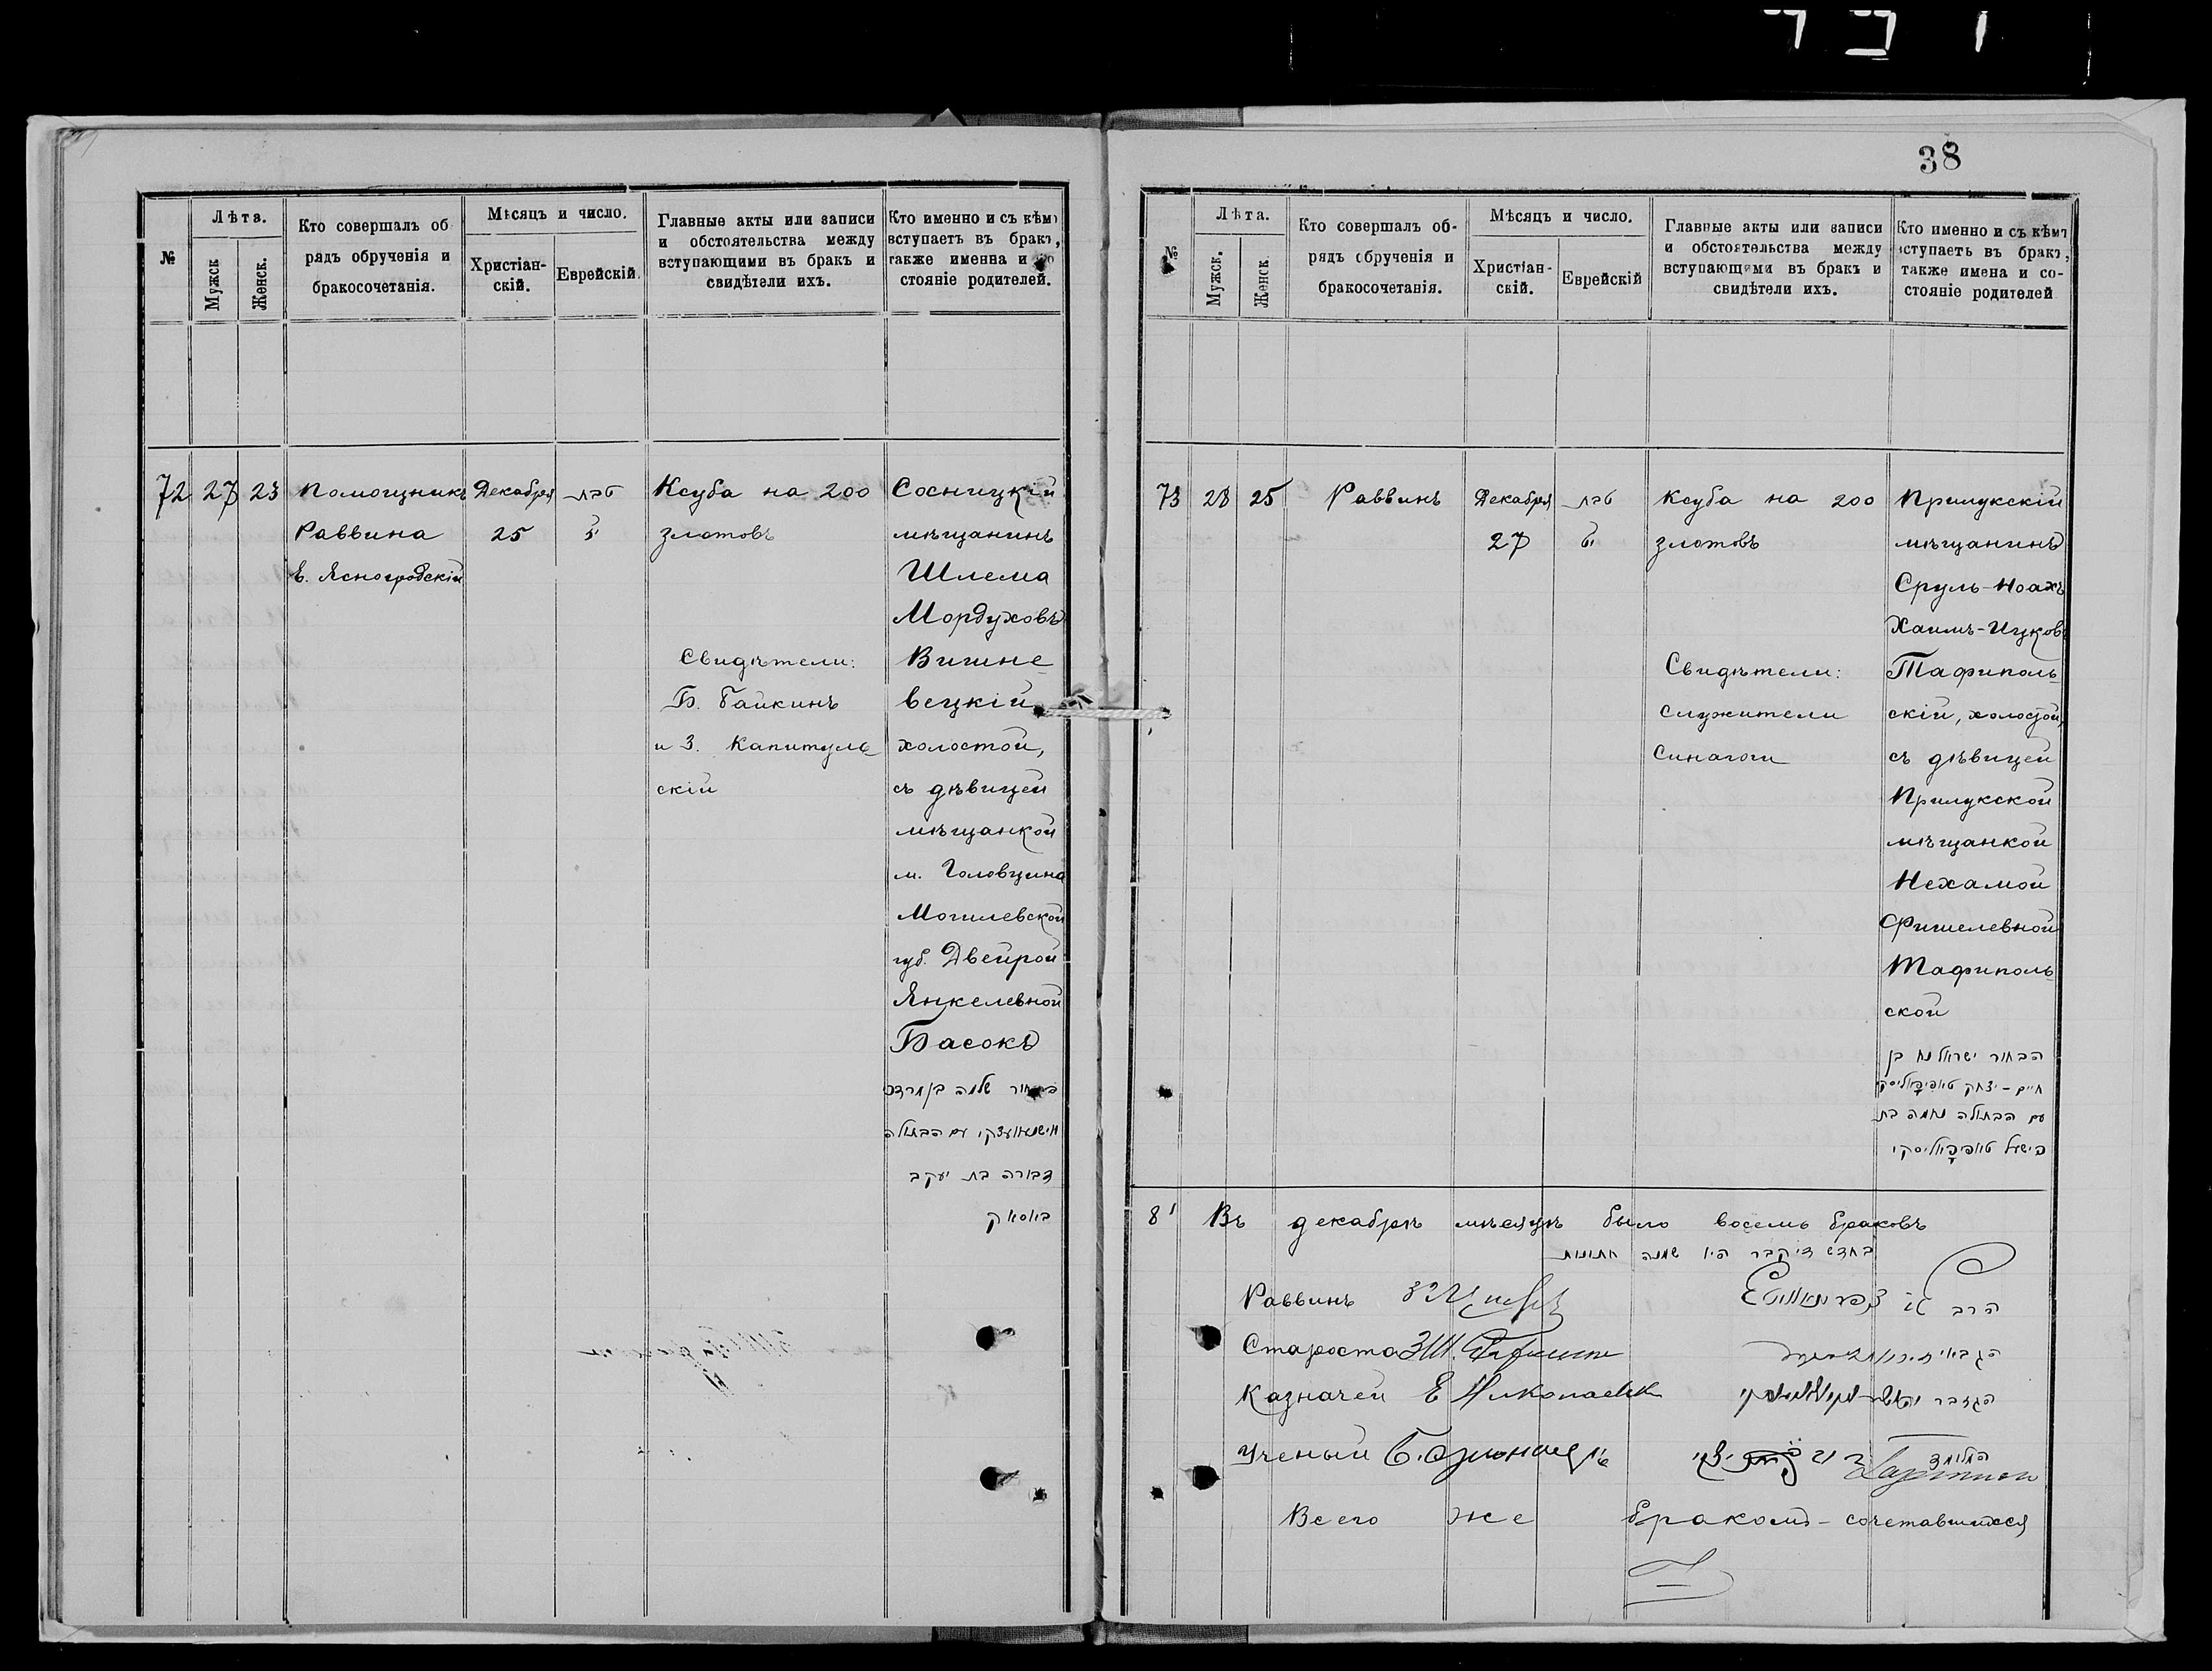 38
№
Лѣта.
Мужск
Женск.
Кто совершалъ об
рядъ обрученія и
бракосочетанія.
Мѣсяцъ и число.
Христіан-
скій.
Еврейскій.
Главные акты или записи
и обстоятельства между
вступающими въ бракъ и
свидѣтели ихъ.
Кто именно и съ кѣмъ
вступаетъ въ бракъ,
также имена и со
стояніе родителей.
72 27 23
Помощникъ
Раввина
Е. Ясногродскій
Декабря
25
טבת
Ксуба на 200
злотовъ
Свидѣтели:
Б. Байкинъ
и З. Капитуль
скій
Сосницкій
мѣщанинъ
Шлема
Мордуховъ
Вишне
вецкій
холостой,
съ дѣвицей
мѣщанкой
м. Головчина
Могилевской
губ. Двейрой
Янкелевной
Басокъ
הבחור שלמה בן מרדכי
ווישנאוועצקי עם הבתולה
דבורה בת יעקב
באסאק
№
Лѣта.
Мужск.
Женск.
Кто совершалъ об-
рядъ обрученія и
бракосочетанія.
Мѣсяцъ и число.
Христіан-
скій.
Еврейскій
Главные акты или записи
и обстоятельства между
вступающими въ бракъ и
свидѣтели ихъ.
Кто именно и съ кѣмъ
вступаетъ въ бракъ,
также имена и со-
стояніе родителей
73 28 25
Раввинъ
Декабря
27
טבת
Ксуба на 200
злотовъ
Свидѣтели:
служители
Синагоги
Прилукскій
мѣщанинъ
Сруль-Ноахъ
Хаимъ-Ицковъ
Тафиполь
скій, холостой,
съ дѣвицей
Прилукской
мѣщанкой
Нехамой
Фишелевной
Тафиполь
ской
הבחור ישראל נח בן
חיים - יצחק טאפיפאליסקי
עם הבתולה נחמה בת
פישעל טאפיפאליסקי
8 Въ декабрѣ мѣсяцѣ было восемь браковъ
בחדש דיקבר היו שמנה חתונות
Раввинъ
הרב
Староста З Ш.
הגבאי
Казначей Е Николаевск
הגזבר
Ученый Б.
המלומד
Всего же бракомъ-сочетавшихся